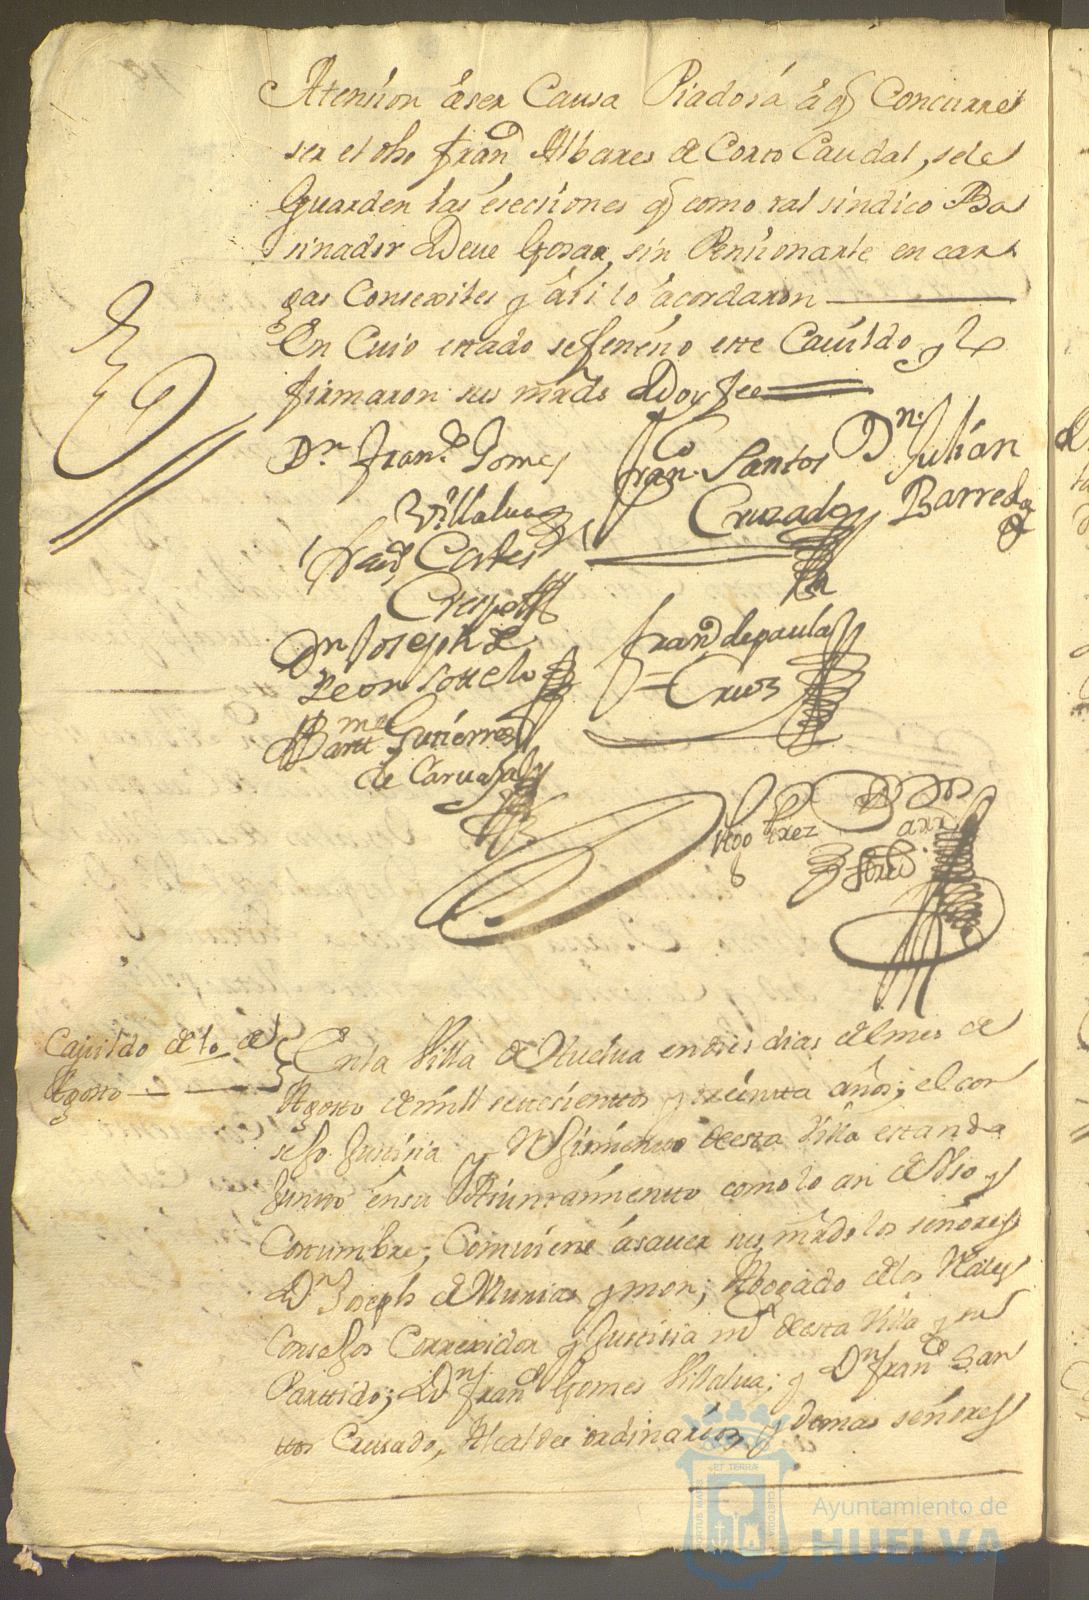 Atension aser Causa Piadosa a q Concurre
ser el dho Fran.co Albares de Corto Caudal, sele
Guarden las esecsiones q como tal sindico Ba
sinador Deve Gosar, sin Pensionarle en car
gas Consexiles y asi lo acordaron
En Cuio estado se fenesio este Cavildo y lo
firmaron sus mrds Doy fee
Dn Fran.co Gomes Villalua
Fran.co Santos Cruzado
Dn Julián Barreda
Fran.co Cortes Crespo
Dn Joseph de Leon Sotelo
Fran.co de paula Cruz
Bartme Gutiérres de Carvajal
Perez
Cavildo de
Agosto
En la Villa de Huelva en dias del mes de
Agosto de mill setesientos y años; el con
sejo Justisia y Rejimiento de esta Villa estando
Junto en su Aiuntamiento como lo an de Uso y
Costumbre; Combiene a saver sus mrds los señores
Dn Joseph de Munias y mon; Abogado de los Rales
Consejos Correxidor y Justisia mr de esta Villa y su
Partido; Dn Fran.co Gomes Villalua; y Dn Fran.co San
tos Crusado, Alcaldes ordinarios y demas señores
ET TERRAE
CUSTODIA
PORTUS MARIS
Ayuntamiento de
HUELVA